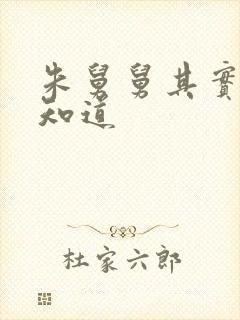 朱舅舅其實
知道
杜家六郎